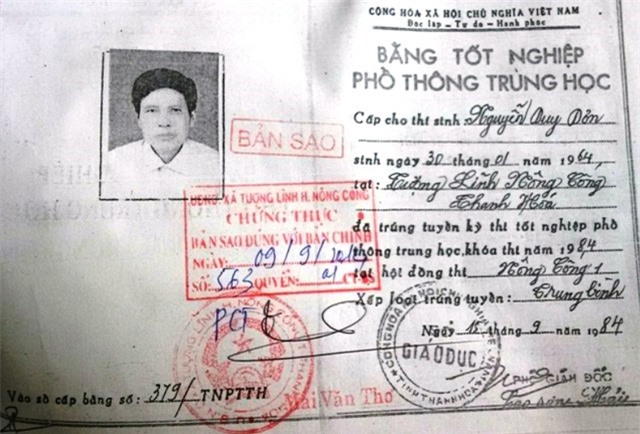 CỘNG HÒA XÃ HỘI CHỦ NGHĨA VIỆT NAM
Độc lập - Tự do - Hạnh phúc
BẰNG TỐT NGHIỆP
PHỔ THÔNG TRUNG HỌC
Cấp cho thí sinh: Nguyễn Duy Dồn
sinh ngày 30 tháng 01 năm 1964,
tại: Tượng Lĩnh Nông Cống
Thanh Hóa
đã trúng tuyển kỳ thi tốt nghiệp phổ
thông trung học, khóa thi năm 1984
tại hội đồng thi Nông Cống 1
Xếp loại trúng tuyển: Trung bình
Ngày 15 tháng 9 năm 1984
PHÓ GIÁM ĐỐC
GIÁO DỤC
BẢN SAO
UBND XÃ TƯỢNG LĨNH H. NÔNG CỐNG
CHỨNG THỰC
BẢN SAO ĐÚNG VỚI BẢN CHÍNH
NGÀY: 09/9/
SỐ: 563 QUYỂN: 01
PCT
Mai Văn Thơ
Vào sổ cấp bằng số: 379/TNPTTH